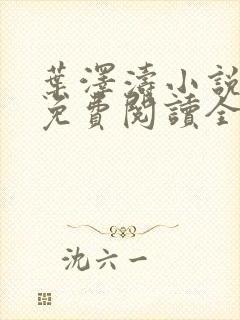 葉澤濤小說
免費閱讀全
沈六一